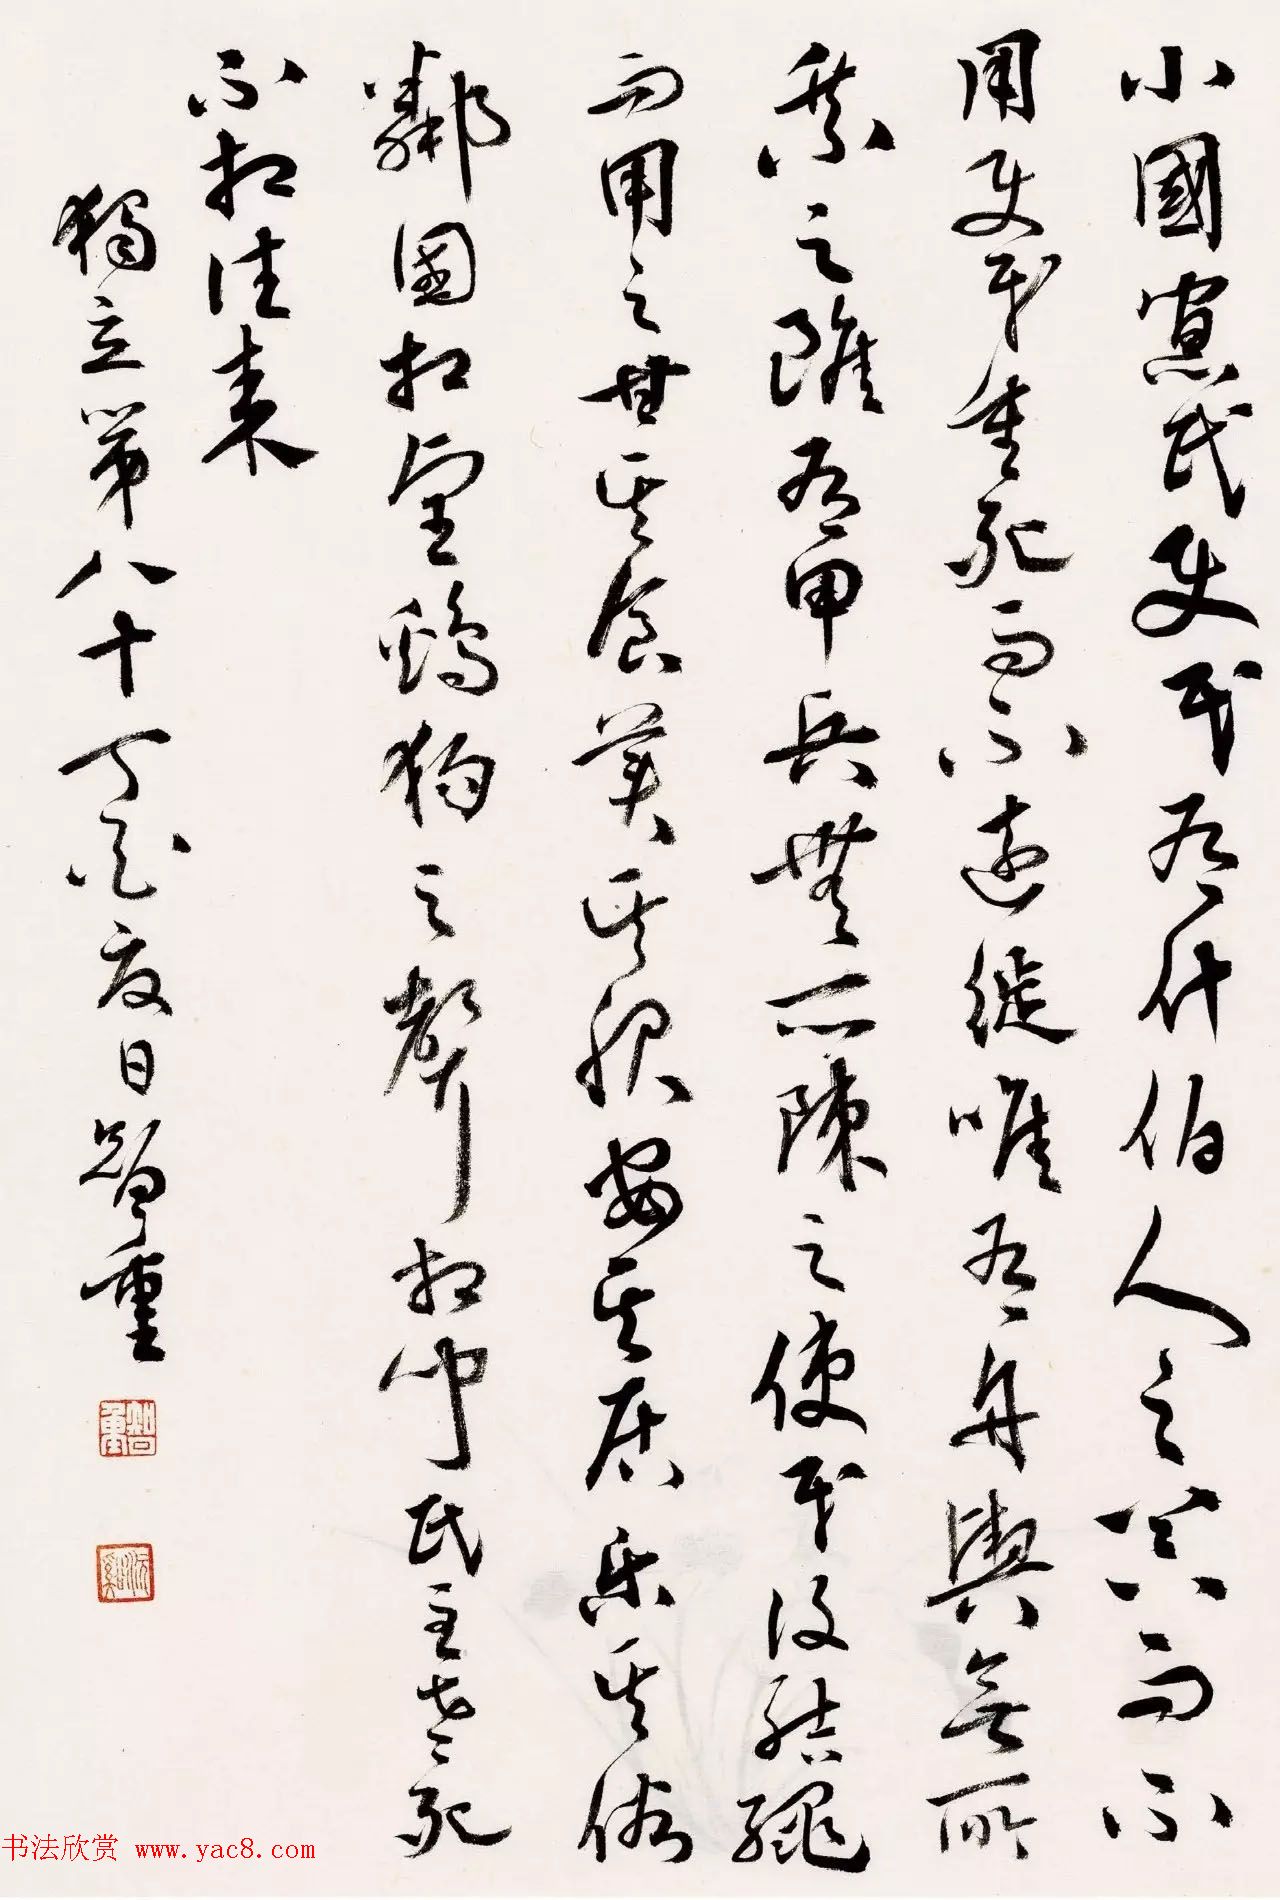 小國寡民使民有什伯人之器而不
用使民重死而不遠徙唯有舟輿無所
乘之雖有甲兵無所陳之使民復結繩
而用之甘其食美其服安其居樂其俗
鄰國相望鷄狗之聲相聞民至老死
不相往來
獨立第八十丁亥夏日智重
智重
书法欣赏 www.yac8.com